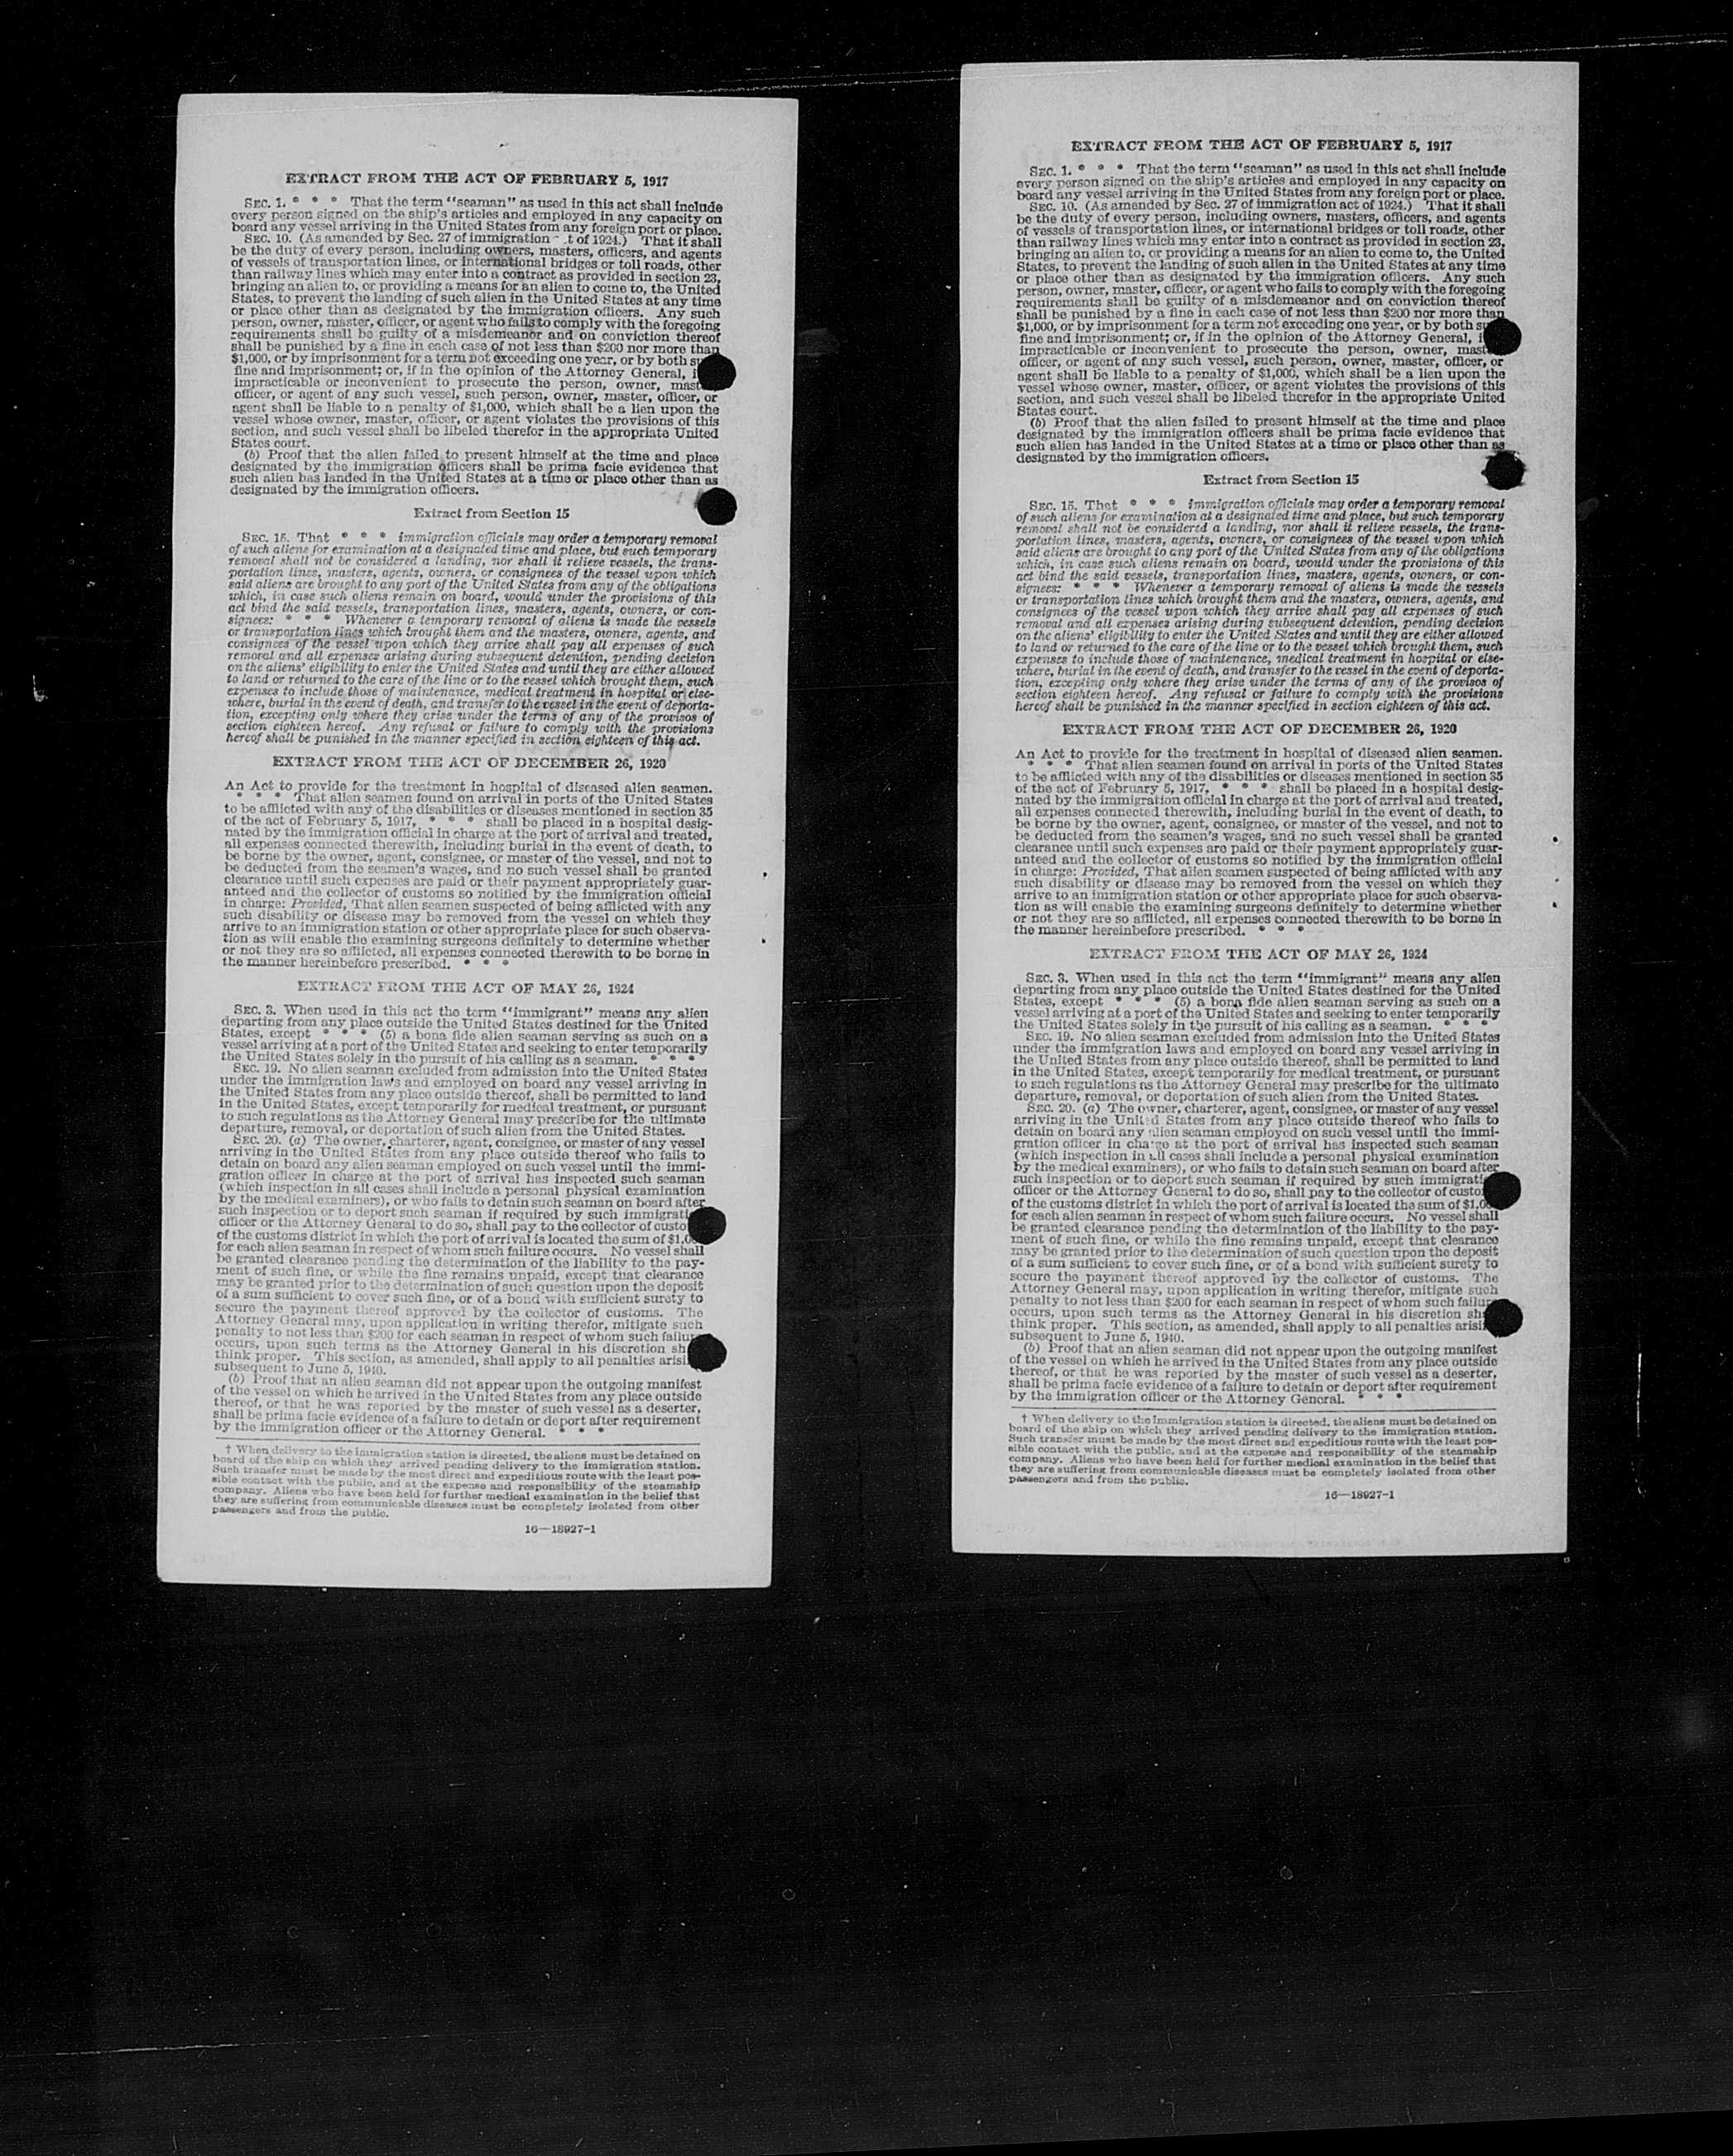 EXTRACT FROM THE ACT OF FEBRUARY 5, 1917
SEC. 1. * * * That the term "seaman" as used in this act shall include
every person signed on the ship's articles and employed in any capacity on
board any vessel arriving in the United States from any foreign port or place.
SEC. 10. (As amended by Sec. 27 of immigration t of 1924.) That it shall
be the duty of every person, including owners, masters, officers, and agents
of vessels of transportation lines, or international bridges or toll roads, other
than railway lines which may enter into a contract as provided in section 23,
bringing an alien to, or providing a means for an alien to come to, the United
States, to prevent the landing of such alien in the United States at any time
or place other than as designated by the immigration officers. Any such
person, owner, master, officer, or agent who fails to comply with the foregoing
requirements shall be guilty of a misdemeanor and on conviction thereof
shall be punished by a fine in each case of not less than $200 nor more than
$1,000, or by imprisonment for a term not exceeding one year, or by both
fine and imprisonment; or, if in the opinion of the Attorney General,
impracticable or inconvenient to prosecute the person, owner, mast
officer, or agent of any such vessel, such person, owner, master, officer, or
agent shall be liable to a penalty of $1,000, which shall be a lien upon the
vessel whose owner, master, officer, or agent violates the provisions of this
section, and such vessel shall be libeled therefor in the appropriate United
States court.
(b) Proof that the alien failed to present himself at the time and place
designated by the immigration officers shall be prima facie evidence that
such alien has landed in the United States at a time or place other than as
designated by the immigration officers.
Extract from Section 15
SEC. 15. That * * * immigration officials may order a temporary removal
of such aliens for examination at a designated time and place, but such temporary
removal shall not be considered a landing, nor shall it relieve vessels, the trans-
portation lines, masters, agents, owners, or consignees of the vessel upon which
said aliens are brought to any port of the United States from any of the obligations
which, in case such aliens remain on board, would under the provisions of this
act bind the said vessels, transportation lines, masters, agents, owners, or con-
signees: * * * Whenever a temporary removal of aliens is made the vessels
or transportation lines which brought them and the masters, owners, agents, and
consignees of the vessel upon which they arrive shall pay all expenses of such
removal and all expenses arising during subsequent detention, pending decision
on the aliens' eligibility to enter the United States and until they are either allowed
to land or returned to the care of the line or to the vessel which brought them, such
expenses to include those of maintenance, medical treatment in hospital or else-
where, burial in the event of death, and transfer to the vessel in the event of deporta-
tion, excepting only where they arise under the terms of any of the provisos of
section eighteen hereof. Any refusal or failure to comply with the provisions
hereof shall be punished in the manner specified in section eighteen of this act.
EXTRACT FROM THE ACT OF DECEMBER 26, 1920
An Act to provide for the treatment in hospital of diseased alien seamen.
* * * That alien seamen found on arrival in ports of the United States
to be afflicted with any of the disabilities or diseases mentioned in section 35
of the act of February 5, 1917, * * * shall be placed in a hospital desig-
nated by the immigration official in charge at the port of arrival and treated,
all expenses connected therewith, including burial in the event of death, to
be borne by the owner, agent, consignee, or master of the vessel, and not to
be deducted from the seamen's wages, and no such vessel shall be granted
clearance until such expenses are paid or their payment appropriately guar-
anteed and the collector of customs so notified by the immigration official
in charge: Provided, That alien seamen suspected of being afflicted with any
such disability or disease may be removed from the vessel on which they
arrive to an immigration station or other appropriate place for such observa-
tion as will enable the examining surgeons definitely to determine whether
or not they are so afflicted, all expenses connected therewith to be borne in
the manner hereinbefore prescribed. * * *
EXTRACT FROM THE ACT OF MAY 26, 1924
SEC. 3. When used in this act the term "immigrant" means any alien
departing from any place outside the United States destined for the United
States, except * * * (5) a bona fide alien seaman serving as such on a
vessel arriving at a port of the United States and seeking to enter temporarily
the United States solely in the pursuit of his calling as a seaman. * * *
SEC. 19. No alien seaman excluded from admission into the United States
under the immigration laws and employed on board any vessel arriving in
the United States from any place outside thereof, shall be permitted to land
in the United States, except temporarily for medical treatment, or pursuant
to such regulations as the Attorney General may prescribe for the ultimate
departure, removal, or deportation of such alien from the United States.
SEC. 20. (a) The owner, charterer, agent, consignee, or master of any vessel
arriving in the United States from any place outside thereof who fails to
detain on board any alien seaman employed on such vessel until the immi-
gration officer in charge at the port of arrival has inspected such seaman
(which inspection in all cases shall include a personal physical examination
by the medical examiners), or who fails to detain such seaman on board after
such inspection or to deport such seaman if required by such immigrati
officer or the Attorney General to do so, shall pay to the collector of custo
of the customs district in which the port of arrival is located the sum of $1,0
for each alien seaman in respect of whom such failure occurs. No vessel shall
be granted clearance pending the determination of the liability to the pay-
ment of such fine, or while the fine remains unpaid, except that clearance
may be granted prior to the determination of such question upon the deposit
of a sum sufficient to cover such fine, or of a bond with sufficient surety to
secure the payment thereof approved by the collector of customs. The
Attorney General may, upon application in writing therefor, mitigate such
penalty to not less than $200 for each seaman in respect of whom such failu
occurs, upon such terms as the Attorney General in his discretion sh
think proper. This section, as amended, shall apply to all penalties arisi
subsequent to June 5, 1940.
(b) Proof that an alien seaman did not appear upon the outgoing manifest
of the vessel on which he arrived in the United States from any place outside
thereof, or that he was reported by the master of such vessel as a deserter,
shall be prima facie evidence of a failure to detain or deport after requirement
by the immigration officer or the Attorney General. * * *
† When delivery to the immigration station is directed, the aliens must be detained on
board of the ship on which they arrived pending delivery to the immigration station.
Such transfer must be made by the most direct and expeditious route with the least pos-
sible contact with the public, and at the expense and responsibility of the steamship
company. Aliens who have been held for further medical examination in the belief that
they are suffering from communicable diseases must be completely isolated from other
passengers and from the public.
16—18927-1
EXTRACT FROM THE ACT OF FEBRUARY 5, 1917
SEC. 1. * * * That the term "seaman" as used in this act shall include
every person signed on the ship's articles and employed in any capacity on
board any vessel arriving in the United States from any foreign port or place.
SEC. 10. (As amended by Sec. 27 of immigration act of 1924.) That it shall
be the duty of every person, including owners, masters, officers, and agents
of vessels of transportation lines, or international bridges or toll roads, other
than railway lines which may enter into a contract as provided in section 23,
bringing an alien to, or providing a means for an alien to come to, the United
States, to prevent the landing of such alien in the United States at any time
or place other than as designated by the immigration officers. Any such
person, owner, master, officer, or agent who fails to comply with the foregoing
requirements shall be guilty of a misdemeanor and on conviction thereof
shall be punished by a fine in each case of not less than $200 nor more than
$1,000, or by imprisonment for a term not exceeding one year, or by both
fine and imprisonment; or, if in the opinion of the Attorney General,
impracticable or inconvenient to prosecute the person, owner, mast
officer, or agent of any such vessel, such person, owner, master, officer, or
agent shall be liable to a penalty of $1,000, which shall be a lien upon the
vessel whose owner, master, officer, or agent violates the provisions of this
section, and such vessel shall be libeled therefor in the appropriate United
States court.
(b) Proof that the alien failed to present himself at the time and place
designated by the immigration officers shall be prima facie evidence that
such alien has landed in the United States at a time or place other than as
designated by the immigration officers.
Extract from Section 15
SEC. 15. That * * * immigration officials may order a temporary removal
of such aliens for examination at a designated time and place, but such temporary
removal shall not be considered a landing, nor shall it relieve vessels, the trans-
portation lines, masters, agents, owners, or consignees of the vessel upon which
said aliens are brought to any port of the United States from any of the obligations
which, in case such aliens remain on board, would under the provisions of this
act bind the said vessels, transportation lines, masters, agents, owners, or con-
signees: * * * Whenever a temporary removal of aliens is made the vessels
or transportation lines which brought them and the masters, owners, agents, and
consignees of the vessel upon which they arrive shall pay all expenses of such
removal and all expenses arising during subsequent detention, pending decision
on the aliens' eligibility to enter the United States and until they are either allowed
to land or returned to the care of the line or to the vessel which brought them, such
expenses to include those of maintenance, medical treatment in hospital or else-
where, burial in the event of death, and transfer to the vessel in the event of deporta-
tion, excepting only where they arise under the terms of any of the provisos of
section eighteen hereof. Any refusal or failure to comply with the provisions
hereof shall be punished in the manner specified in section eighteen of this act.
EXTRACT FROM THE ACT OF DECEMBER 26, 1920
An Act to provide for the treatment in hospital of diseased alien seamen.
* * * That alien seamen found on arrival in ports of the United States
to be afflicted with any of the disabilities or diseases mentioned in section 35
of the act of February 5, 1917, * * * shall be placed in a hospital desig-
nated by the immigration official in charge at the port of arrival and treated,
all expenses connected therewith, including burial in the event of death, to
be borne by the owner, agent, consignee, or master of the vessel, and not to
be deducted from the seamen's wages, and no such vessel shall be granted
clearance until such expenses are paid or their payment appropriately guar-
anteed and the collector of customs so notified by the immigration official
in charge: Provided, That alien seamen suspected of being afflicted with any
such disability or disease may be removed from the vessel on which they
arrive to an immigration station or other appropriate place for such observa-
tion as will enable the examining surgeons definitely to determine whether
or not they are so afflicted, all expenses connected therewith to be borne in
the manner hereinbefore prescribed. * * *
EXTRACT FROM THE ACT OF MAY 26, 1924
SEC. 3. When used in this act the term "immigrant" means any alien
departing from any place outside the United States destined for the United
States, except * * * (5) a bona fide alien seaman serving as such on a
vessel arriving at a port of the United States and seeking to enter temporarily
the United States solely in the pursuit of his calling as a seaman. * * *
SEC. 19. No alien seaman excluded from admission into the United States
under the immigration laws and employed on board any vessel arriving in
the United States from any place outside thereof, shall be permitted to land
in the United States, except temporarily for medical treatment, or pursuant
to such regulations as the Attorney General may prescribe for the ultimate
departure, removal, or deportation of such alien from the United States.
SEC. 20. (a) The owner, charterer, agent, consignee, or master of any vessel
arriving in the United States from any place outside thereof who fails to
detain on board any alien seaman employed on such vessel until the immi-
gration officer in charge at the port of arrival has inspected such seaman
(which inspection in all cases shall include a personal physical examination
by the medical examiners), or who fails to detain such seaman on board after
such inspection or to deport such seaman if required by such immigrati
officer or the Attorney General to do so, shall pay to the collector of custo
of the customs district in which the port of arrival is located the sum of $1,0
for each alien seaman in respect of whom such failure occurs. No vessel shall
be granted clearance pending the determination of the liability to the pay-
ment of such fine, or while the fine remains unpaid, except that clearance
may be granted prior to the determination of such question upon the deposit
of a sum sufficient to cover such fine, or of a bond with sufficient surety to
secure the payment thereof approved by the collector of customs. The
Attorney General may, upon application in writing therefor, mitigate such
penalty to not less than $200 for each seaman in respect of whom such failu
occurs, upon such terms as the Attorney General in his discretion sh
think proper. This section, as amended, shall apply to all penalties arisi
subsequent to June 5, 1940.
(b) Proof that an alien seaman did not appear upon the outgoing manifest
of the vessel on which he arrived in the United States from any place outside
thereof, or that he was reported by the master of such vessel as a deserter,
shall be prima facie evidence of a failure to detain or deport after requirement
by the immigration officer or the Attorney General. * * *
† When delivery to the immigration station is directed, the aliens must be detained on
board of the ship on which they arrived pending delivery to the immigration station.
Such transfer must be made by the most direct and expeditious route with the least pos-
sible contact with the public, and at the expense and responsibility of the steamship
company. Aliens who have been held for further medical examination in the belief that
they are suffering from communicable diseases must be completely isolated from other
passengers and from the public.
16—18927-1